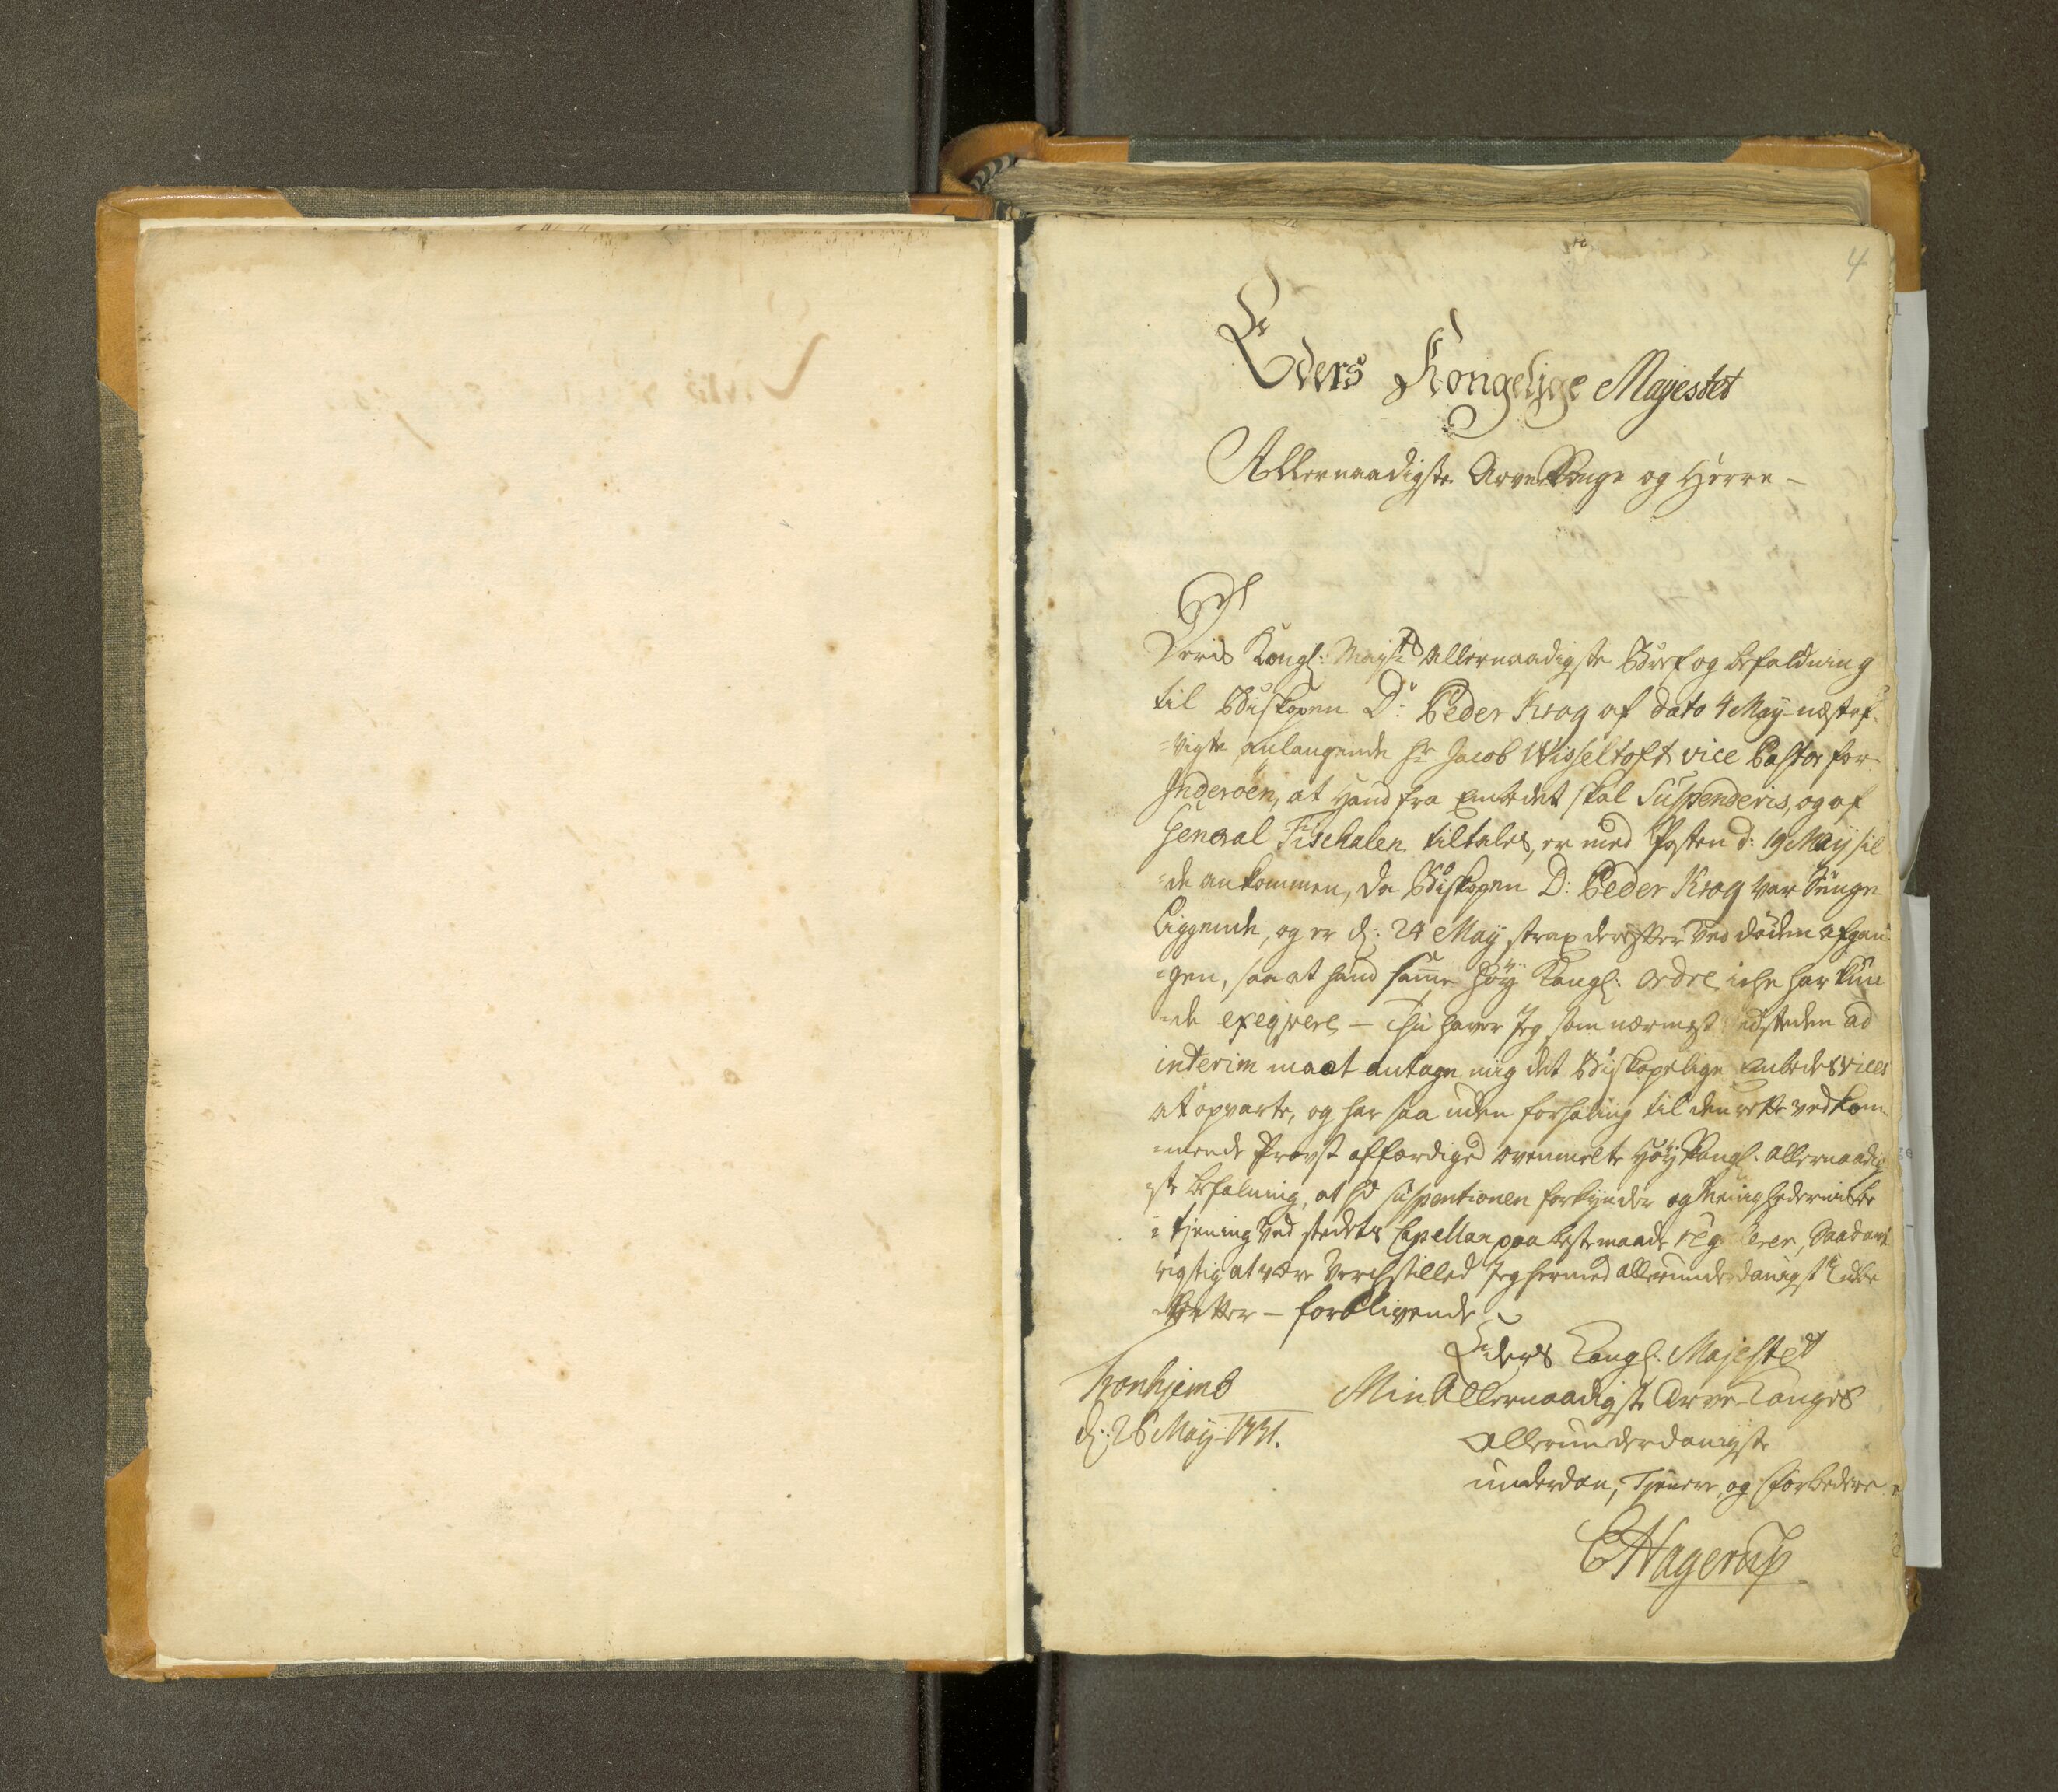 4
Eders Kongelige Mayestet
Allernaadigste Arve Konge og Herre -
Deris Kongl: Mayts Allernaadigste Bref og befaldning
til Biskopen Dr: Peder Krog af dato 4 May næstef-
=vigte anlangende Hr Jacob Wisseltoft vice Pastor for
Inderöen, at hand fra Embedet skal Suspenderis, og af
General Fischalen tiltales, er med Posten d: 19 Maÿ sil
=de ankommen, da Biskopen D: Peder Krog var Senge
liggende, og er d: 24 Maÿ strax derefter ved döden afgan
=gen, saa at hand samme höÿ Kongl: ordre iche har kun
=de exeqvere - Thi haver Jeg som nærmest ved steden ad
interim maat antage mig det Biskopelige Embedes vices
at opvarte, og har saa uden forhaling til den rette vedkom-
=mende Provst affærdiged ovenmelte Höÿ Kongl: Allernaadig
=ste befalning, at hd suspentionen forkynder og Meenighederniske
= tjening ved stedets Capellan paa beste maade regulerer, Saadant
rigtig at være Verchstilled Jeg hermed allerunderdanigst
=retter - forblivende
Eders Kongl: Majestet
Min Allernaadigste Arve Konges
Allerunderdanigste
underdan, Tjenere og forbedere
Tronhjem
d: 26 Maÿ 1731.
CHagerup